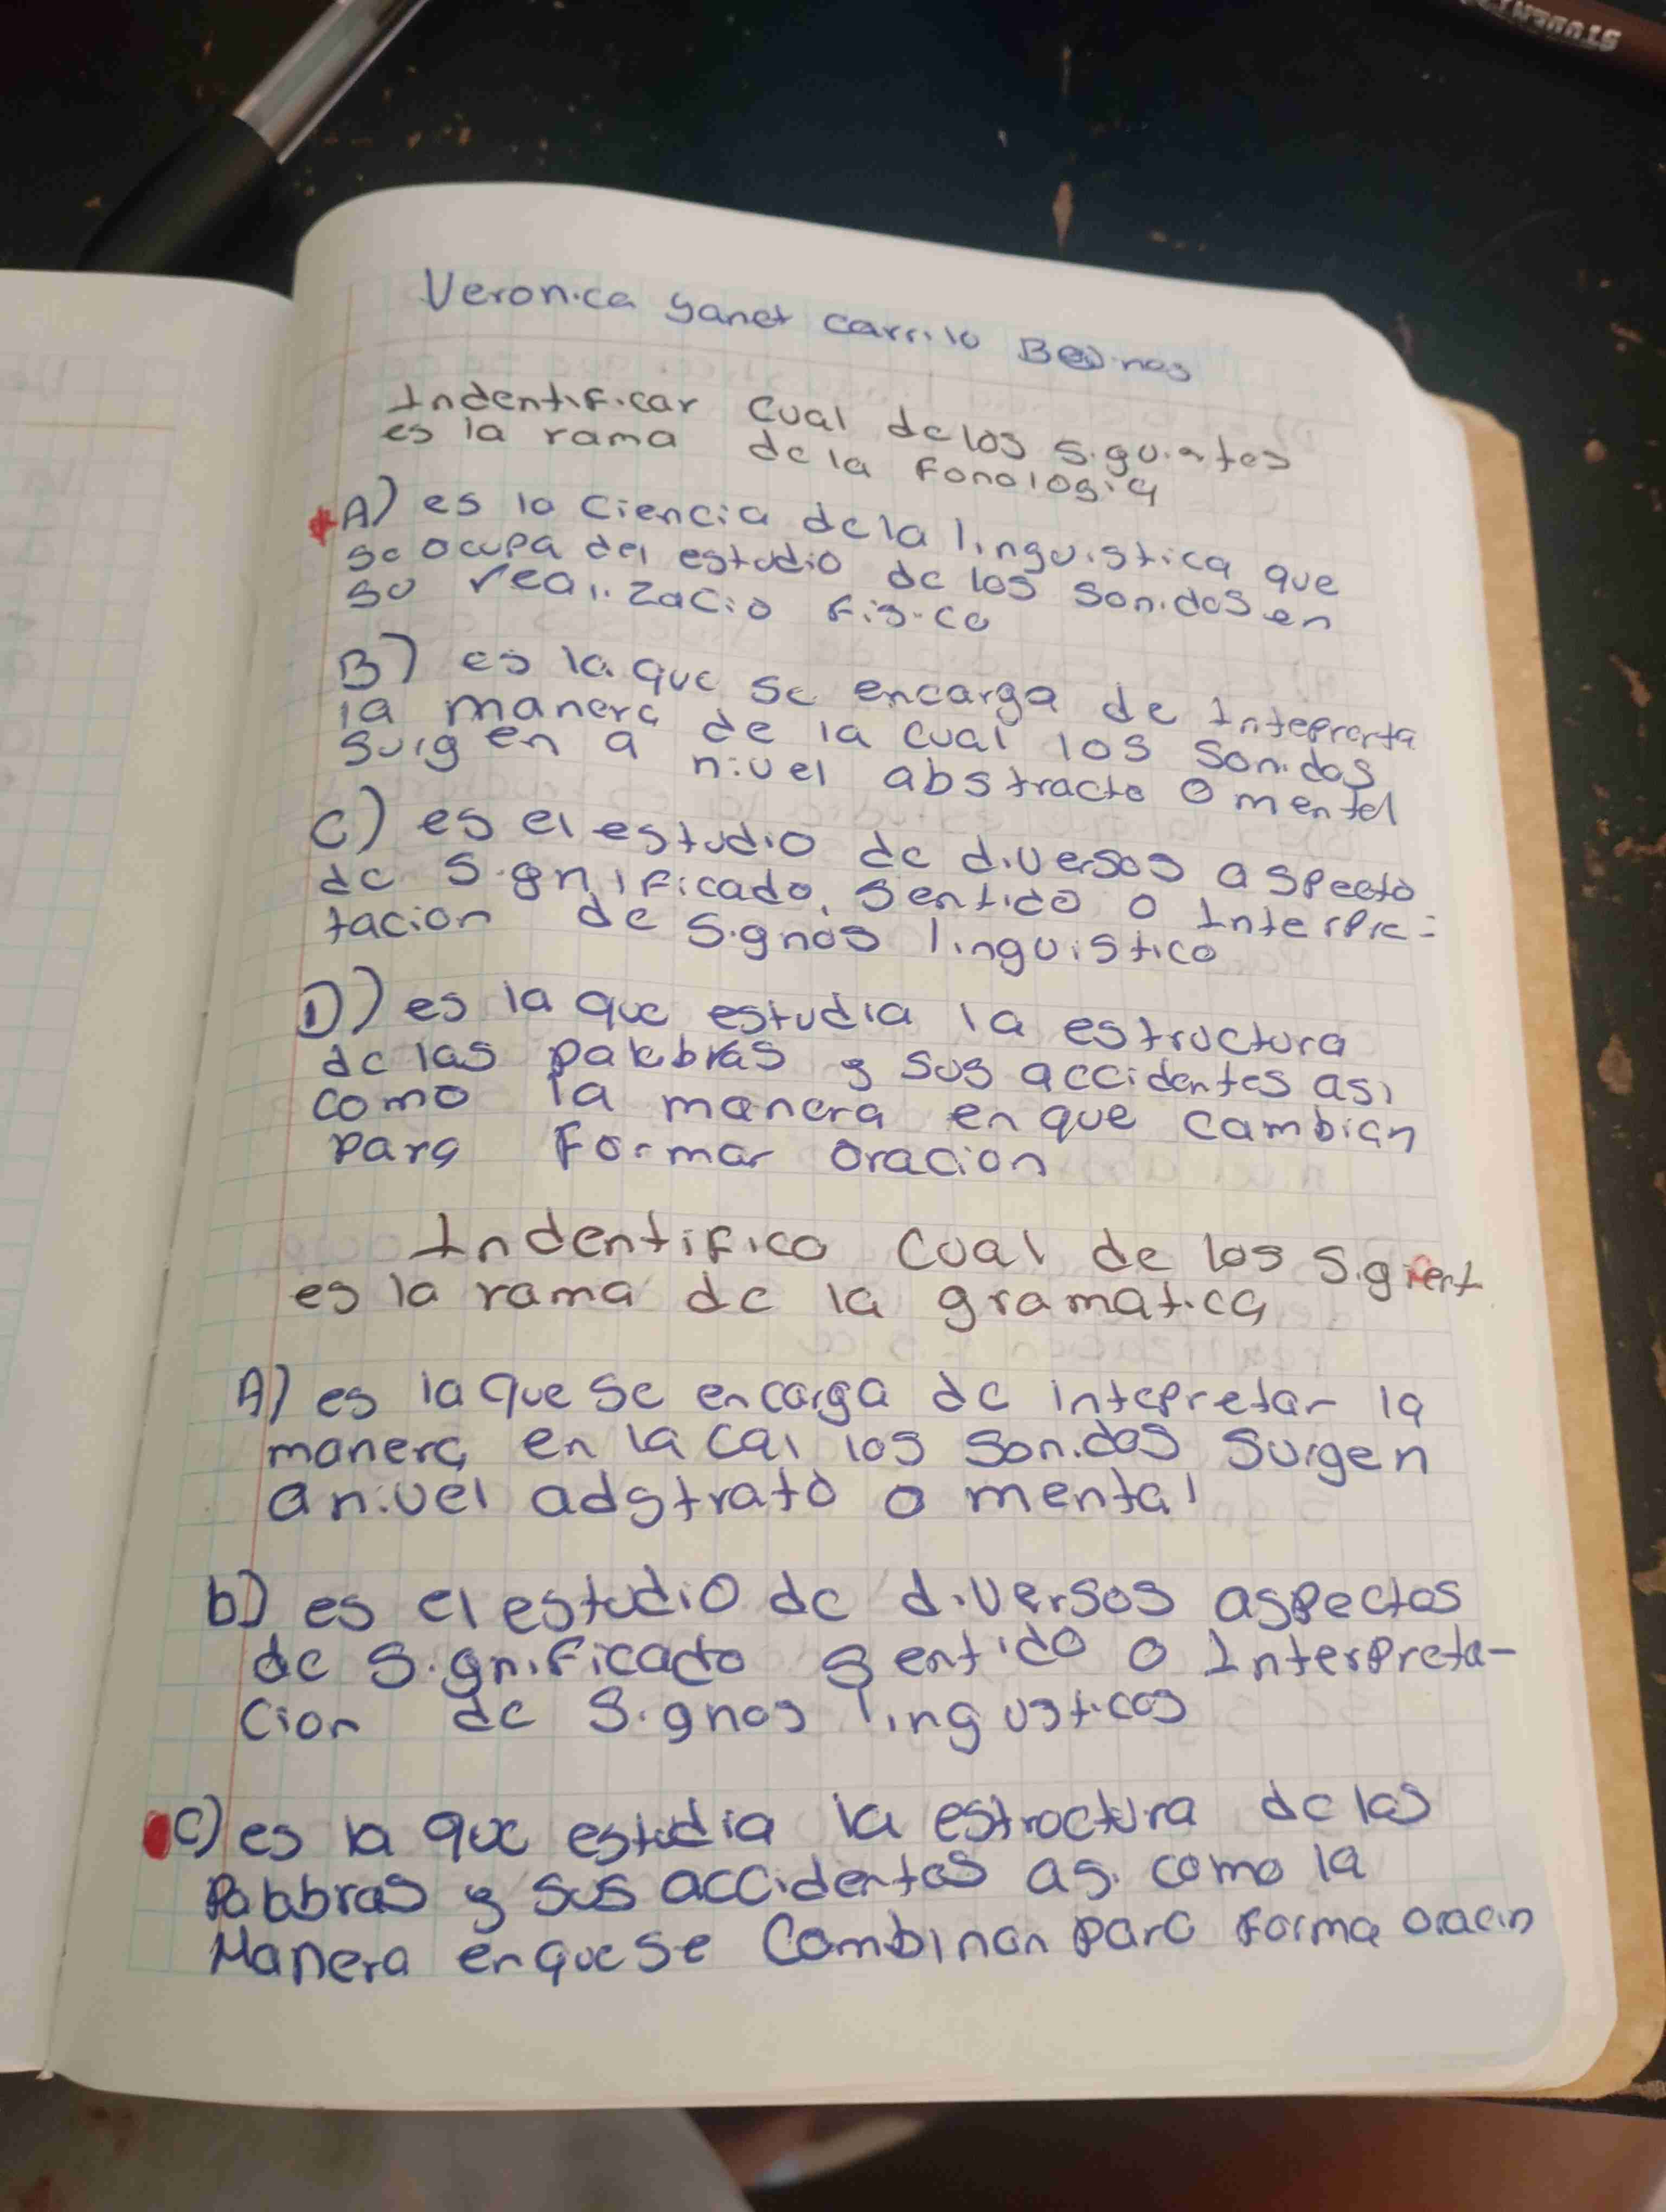 STUDENT
Veronica Yanet Carrillo
Indentificar Cual de los siguientes
es la rama de la Fonologia
A) es la Ciencia de la linguistica que
se ocupa del estudio de los Sonidos en
su realizacio fisica
B) es la que se encarga de Inteprerta
la manera de la cual los Sonidos
Surgen a nivel abstracto o mentel
C) es el estudio de diversos aspecto
de Significado, Sentido o Interpre-
tacion de Signos linguistico
D) es la que estudia la estructura
de las palabras y sus accidentes asi
como la manera en que cambian
para Formar oracion
Indentifico Cual de los Sigient
es la rama de la gramatica
A) es la que se encarga de intepretar la
manera en la cal los Sonidos Surgen
a nivel adstrato o mental
b) es el estudio de diversos aspectos
de Significado Sentido o Interpreta-
Cion de Signos lingusticos
C) es la que estudia la estroctura de las
Palabras y sus accidentes asi como la
Manera en que se Combinan para Forma oracin